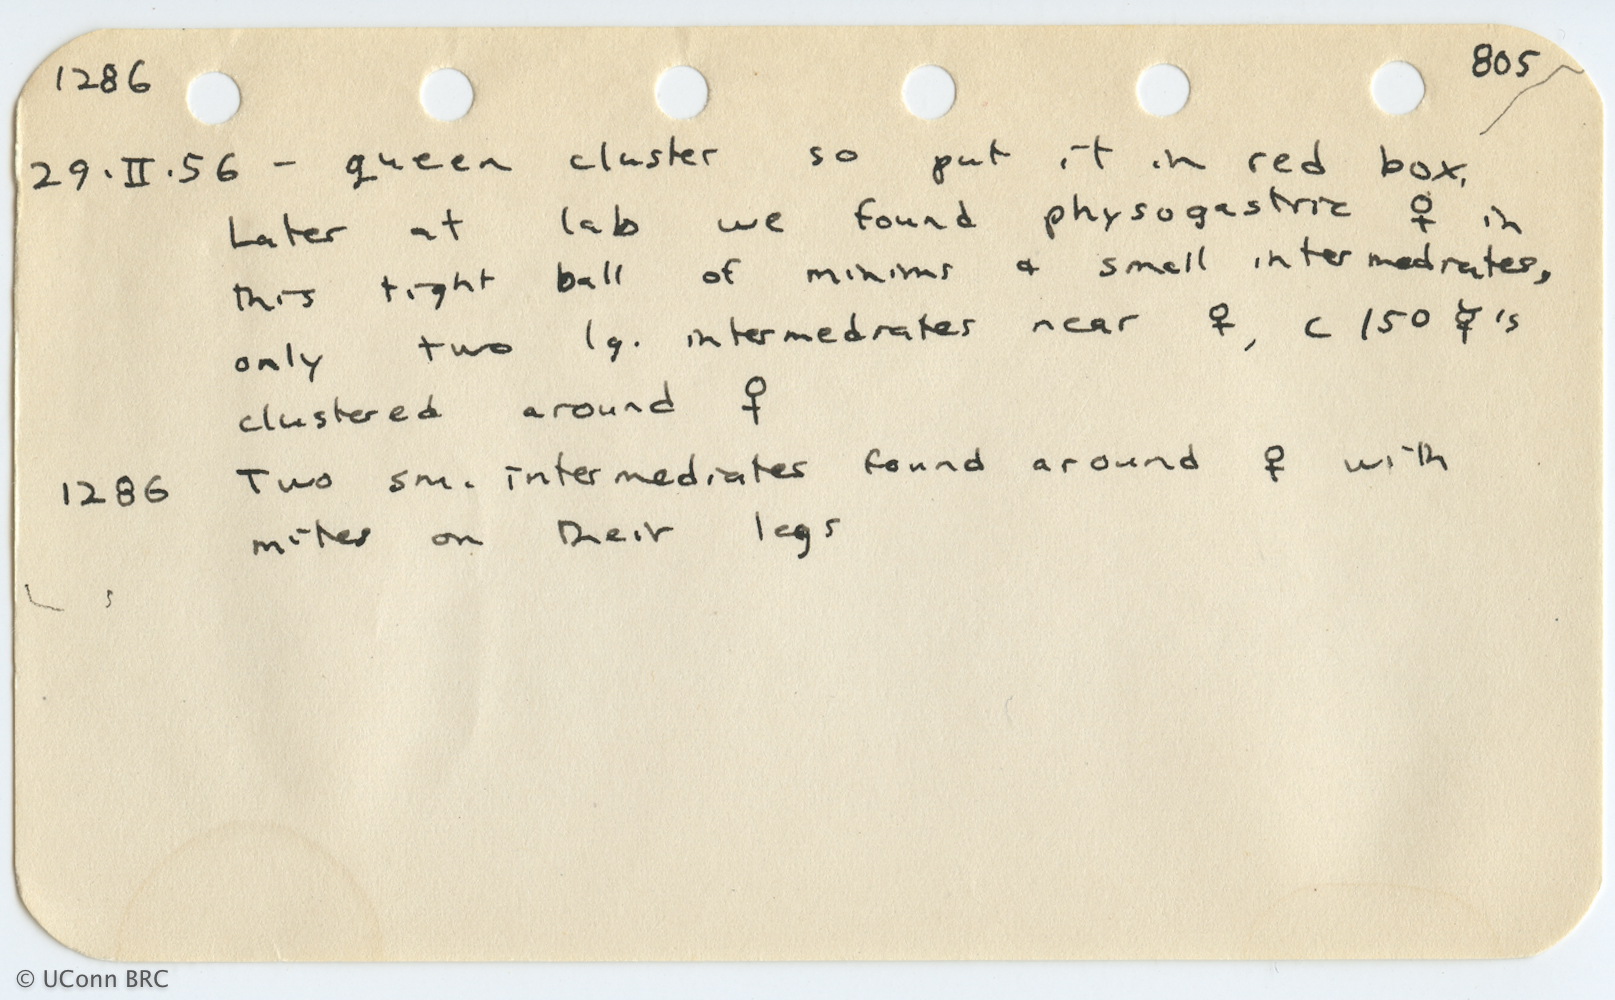 1286 805
29.II.56 - queen cluster so put it in red box.
Later at lab we found physogastric ♀ in
this tight ball of minims & small intermediates,
only two lg. intermediates near ♀, c 150 ☿'s
clustered around ♀
1286 Two sm. intermediates found around ♀ with
mites on their legs
© UConn BRC